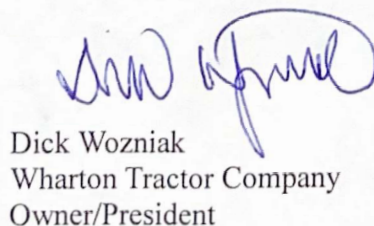 Dick Wozniak
Wharton Tractor Company
Owner/President